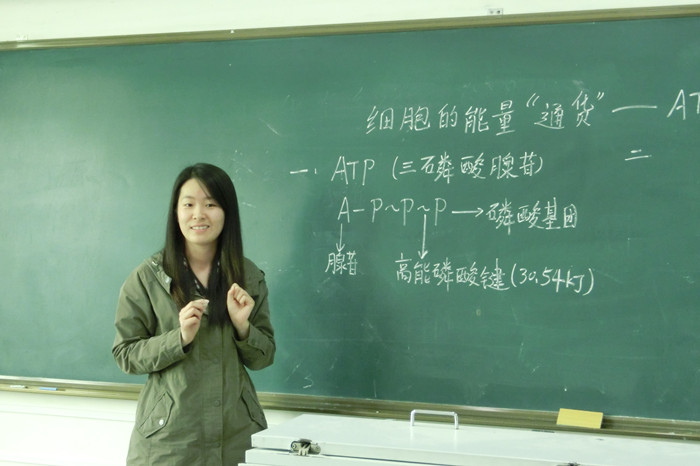 细胞的能量“通货”——AT
一: ATP (三磷酸腺苷)
二
A-P~P~P→磷酸基团
腺苷
高能磷酸键(30.54kJ)